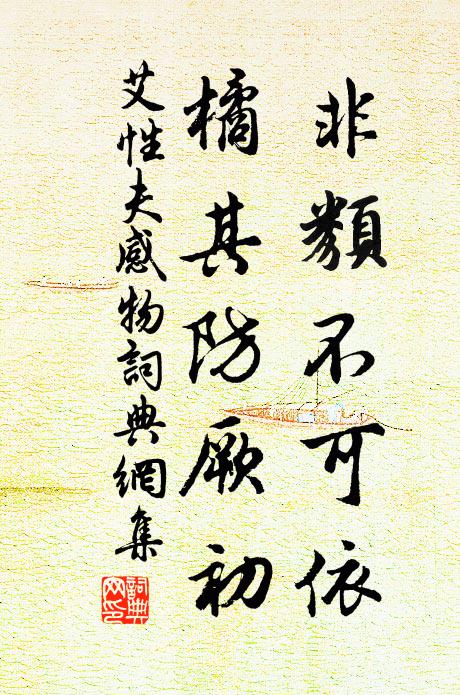 非類不可依
橘其防厥初
艾性夫感物詞典網集
詞典网印